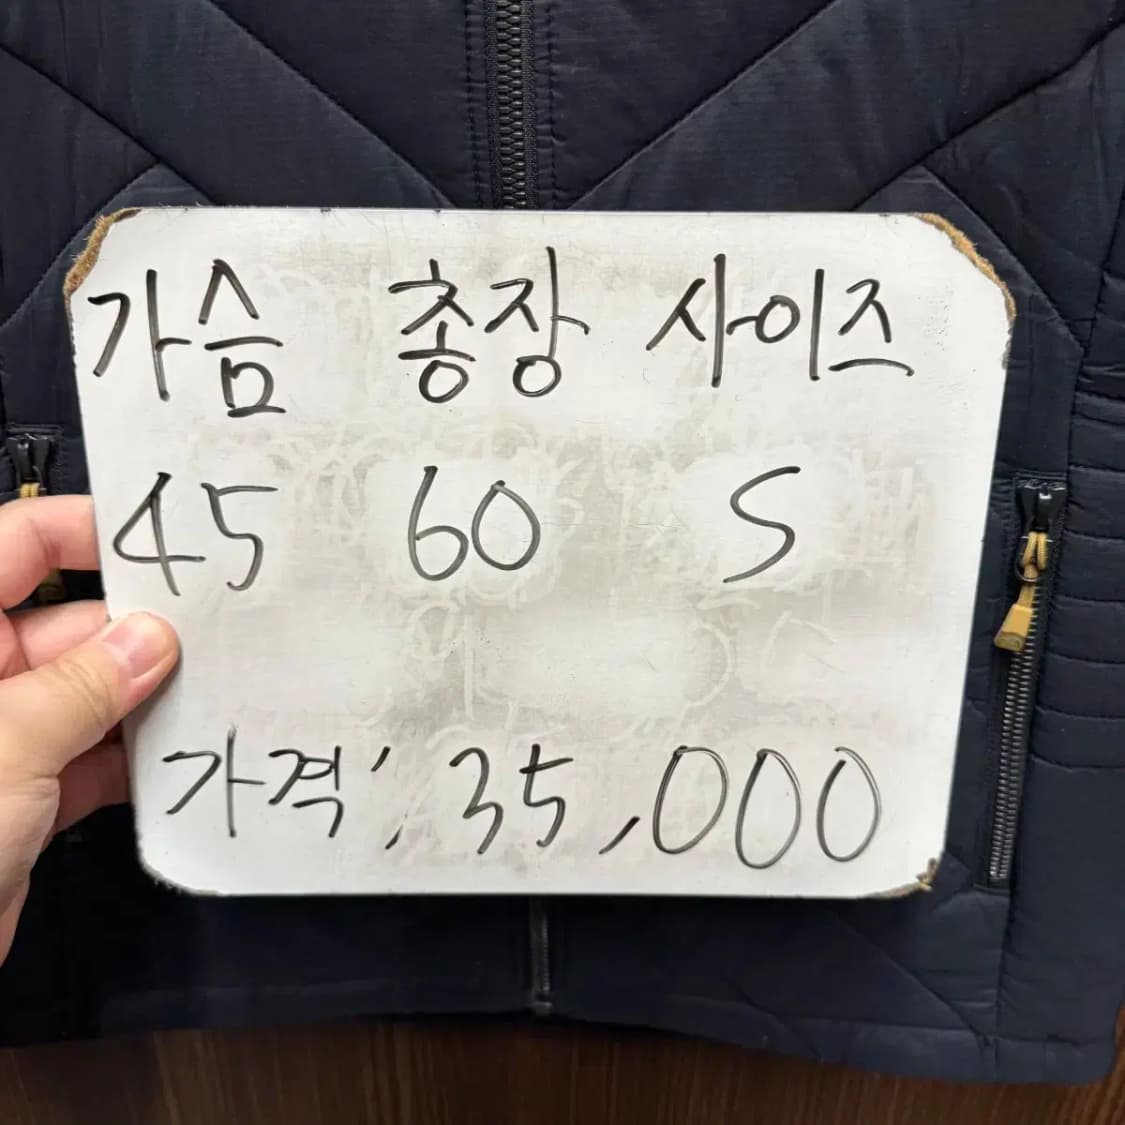 가슴 총장 사이즈
45 60 S
가격; 35,000